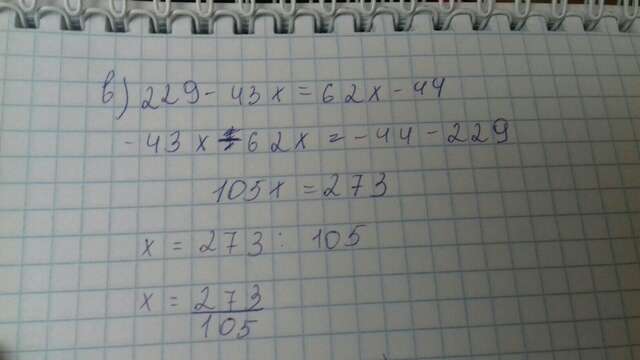 в) 229 - 43x = 62x - 44
- 43x - 62x = - 44 - 229
105x = 273
x = 273 : 105
x = 273/105